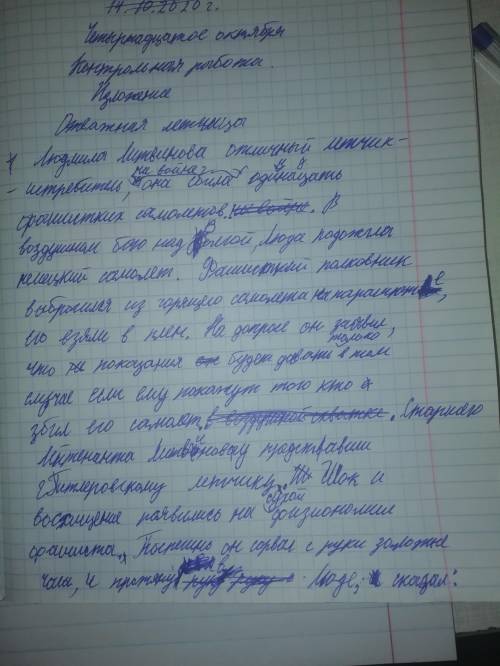 14.10.2020 г.
Четырнадцатое октября
Контрольная работа.
Изложение
Отважная летчица
Людмила Литвинова отличный летчик-
-истребитель, на войне она сбила одинадцать
фашистких самолетов. на войне. В
воздушном бою над Волгой, Люда подожгла
немецкий самолет. Фашисткий полковник
выбросился из горящего самолета на парашюте,
его взяли в плен. На допросе он заявил,
что показания он будет давать только в том
случае если ему покажут того кто
сбил его самолёт в воздушной схватке. Старшего
лейтенанта Литвинову представили
гитлеровскому летчику. Шок и
восхищение появились на сухой физиономии
фашиста. Поспешно он сорвал с руки золотые
часы, и протянул руку Люде, и сказал: